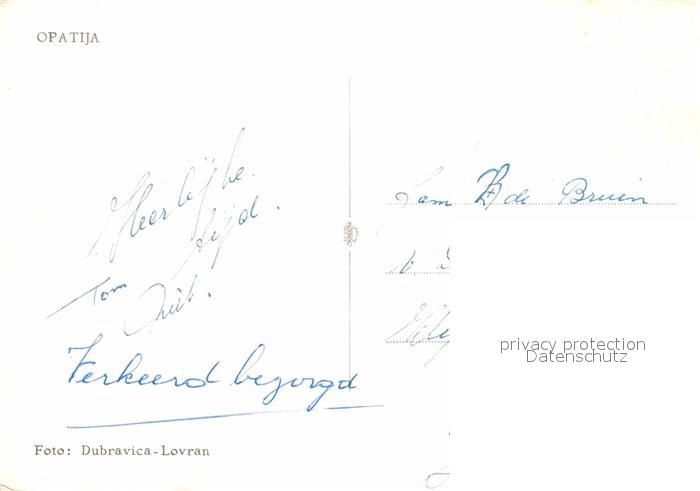 OPATIJA
Heerlijke
tijd.
Tom
Verkeerd bezorgd
Foto: Dubravica-Lovran
Fam de Bruin
privacy protection
Datenschutz